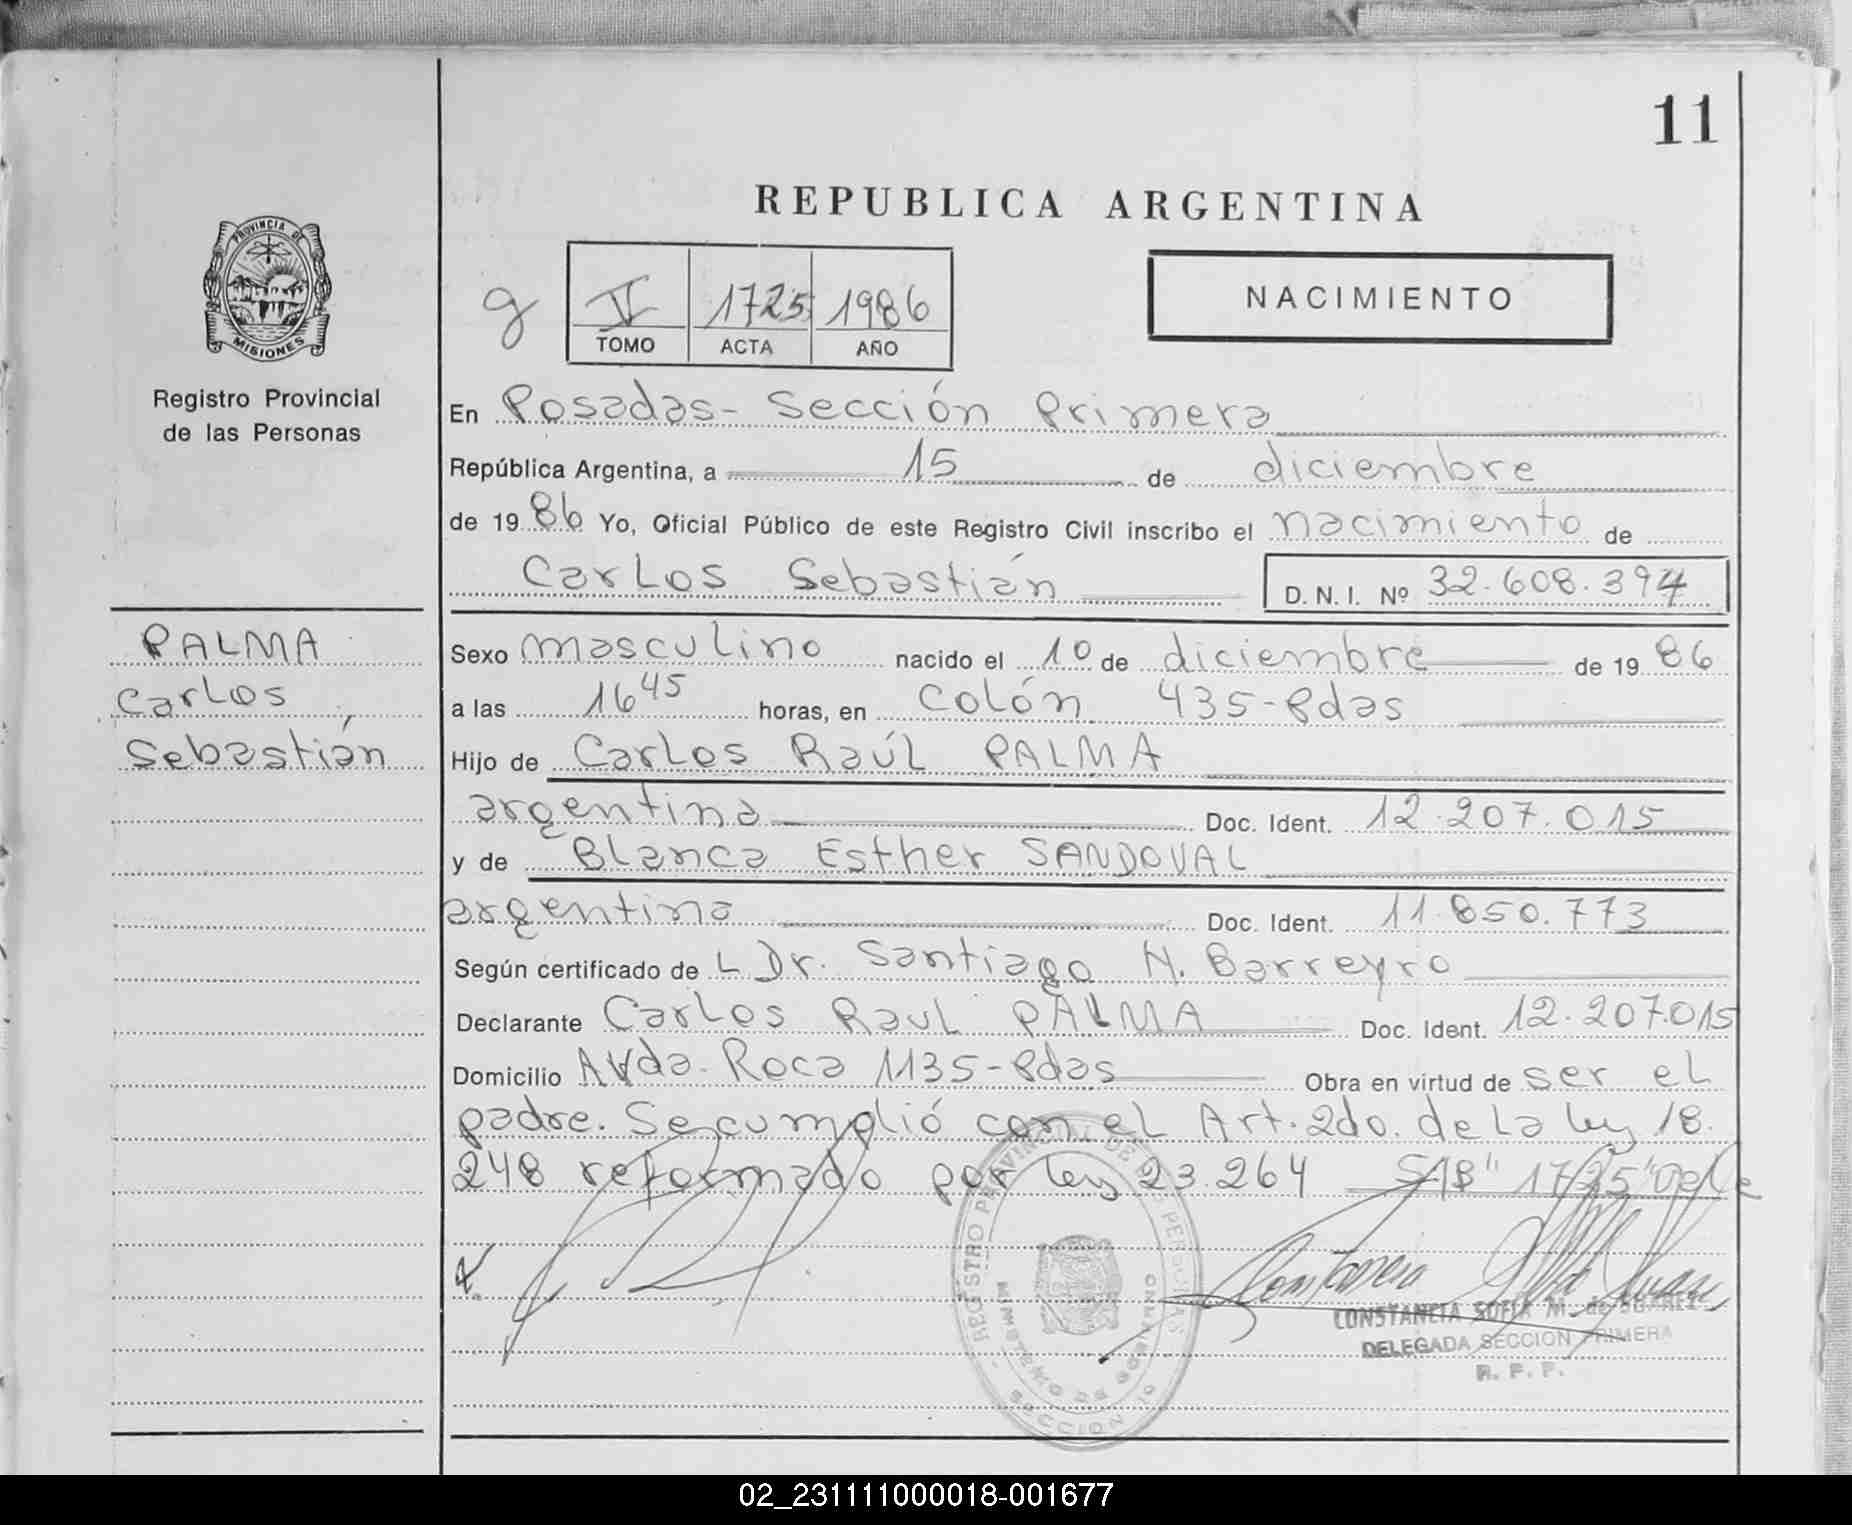 11
REPUBLICA ARGENTINA
PROVINCIA DE
MISIONES
Registro Provincial
de las Personas
1725 1986
TOMO ACTA AÑO
NACIMIENTO
En Posadas - Sección Primera
República Argentina, a 15 de diciembre
de 1986 Yo, Oficial Público de este Registro Civil inscribo el nacimiento de
Carlos Sebastián D. N. I. Nº 32.608.394
PALMA
Carlos
Sebastián
Sexo masculino nacido el 10 de diciembre de 1986
a las 16 45 horas, en Colón 435 - Pdas
Hijo de Carlos Raúl PALMA
argentina Doc. Ident. 12.207.015
y de Blanca Esther SANDOVAL
argentina Doc. Ident. 11.850.773
Según certificado de L Dr. Santiago N. Barreyro
Declarante Carlos Raul PALMA Doc. Ident. 12.207.015
Domicilio Avda. Roca 1135 - Pdas Obra en virtud de ser el
padre. Se cumplió con el Art. 2do. de la ley 18.
248 reformado por ley 23.264 S/B "1725" Vale
REGISTRO PROVINCIAL DE LAS PERSONAS
MINISTERIO DE GOBIERNO
SECCION 1º
CONSTANCIA SOFIA M. de SUAREZ
DELEGADA SECCION PRIMERA
R. P. P.
02_231111000018-001677